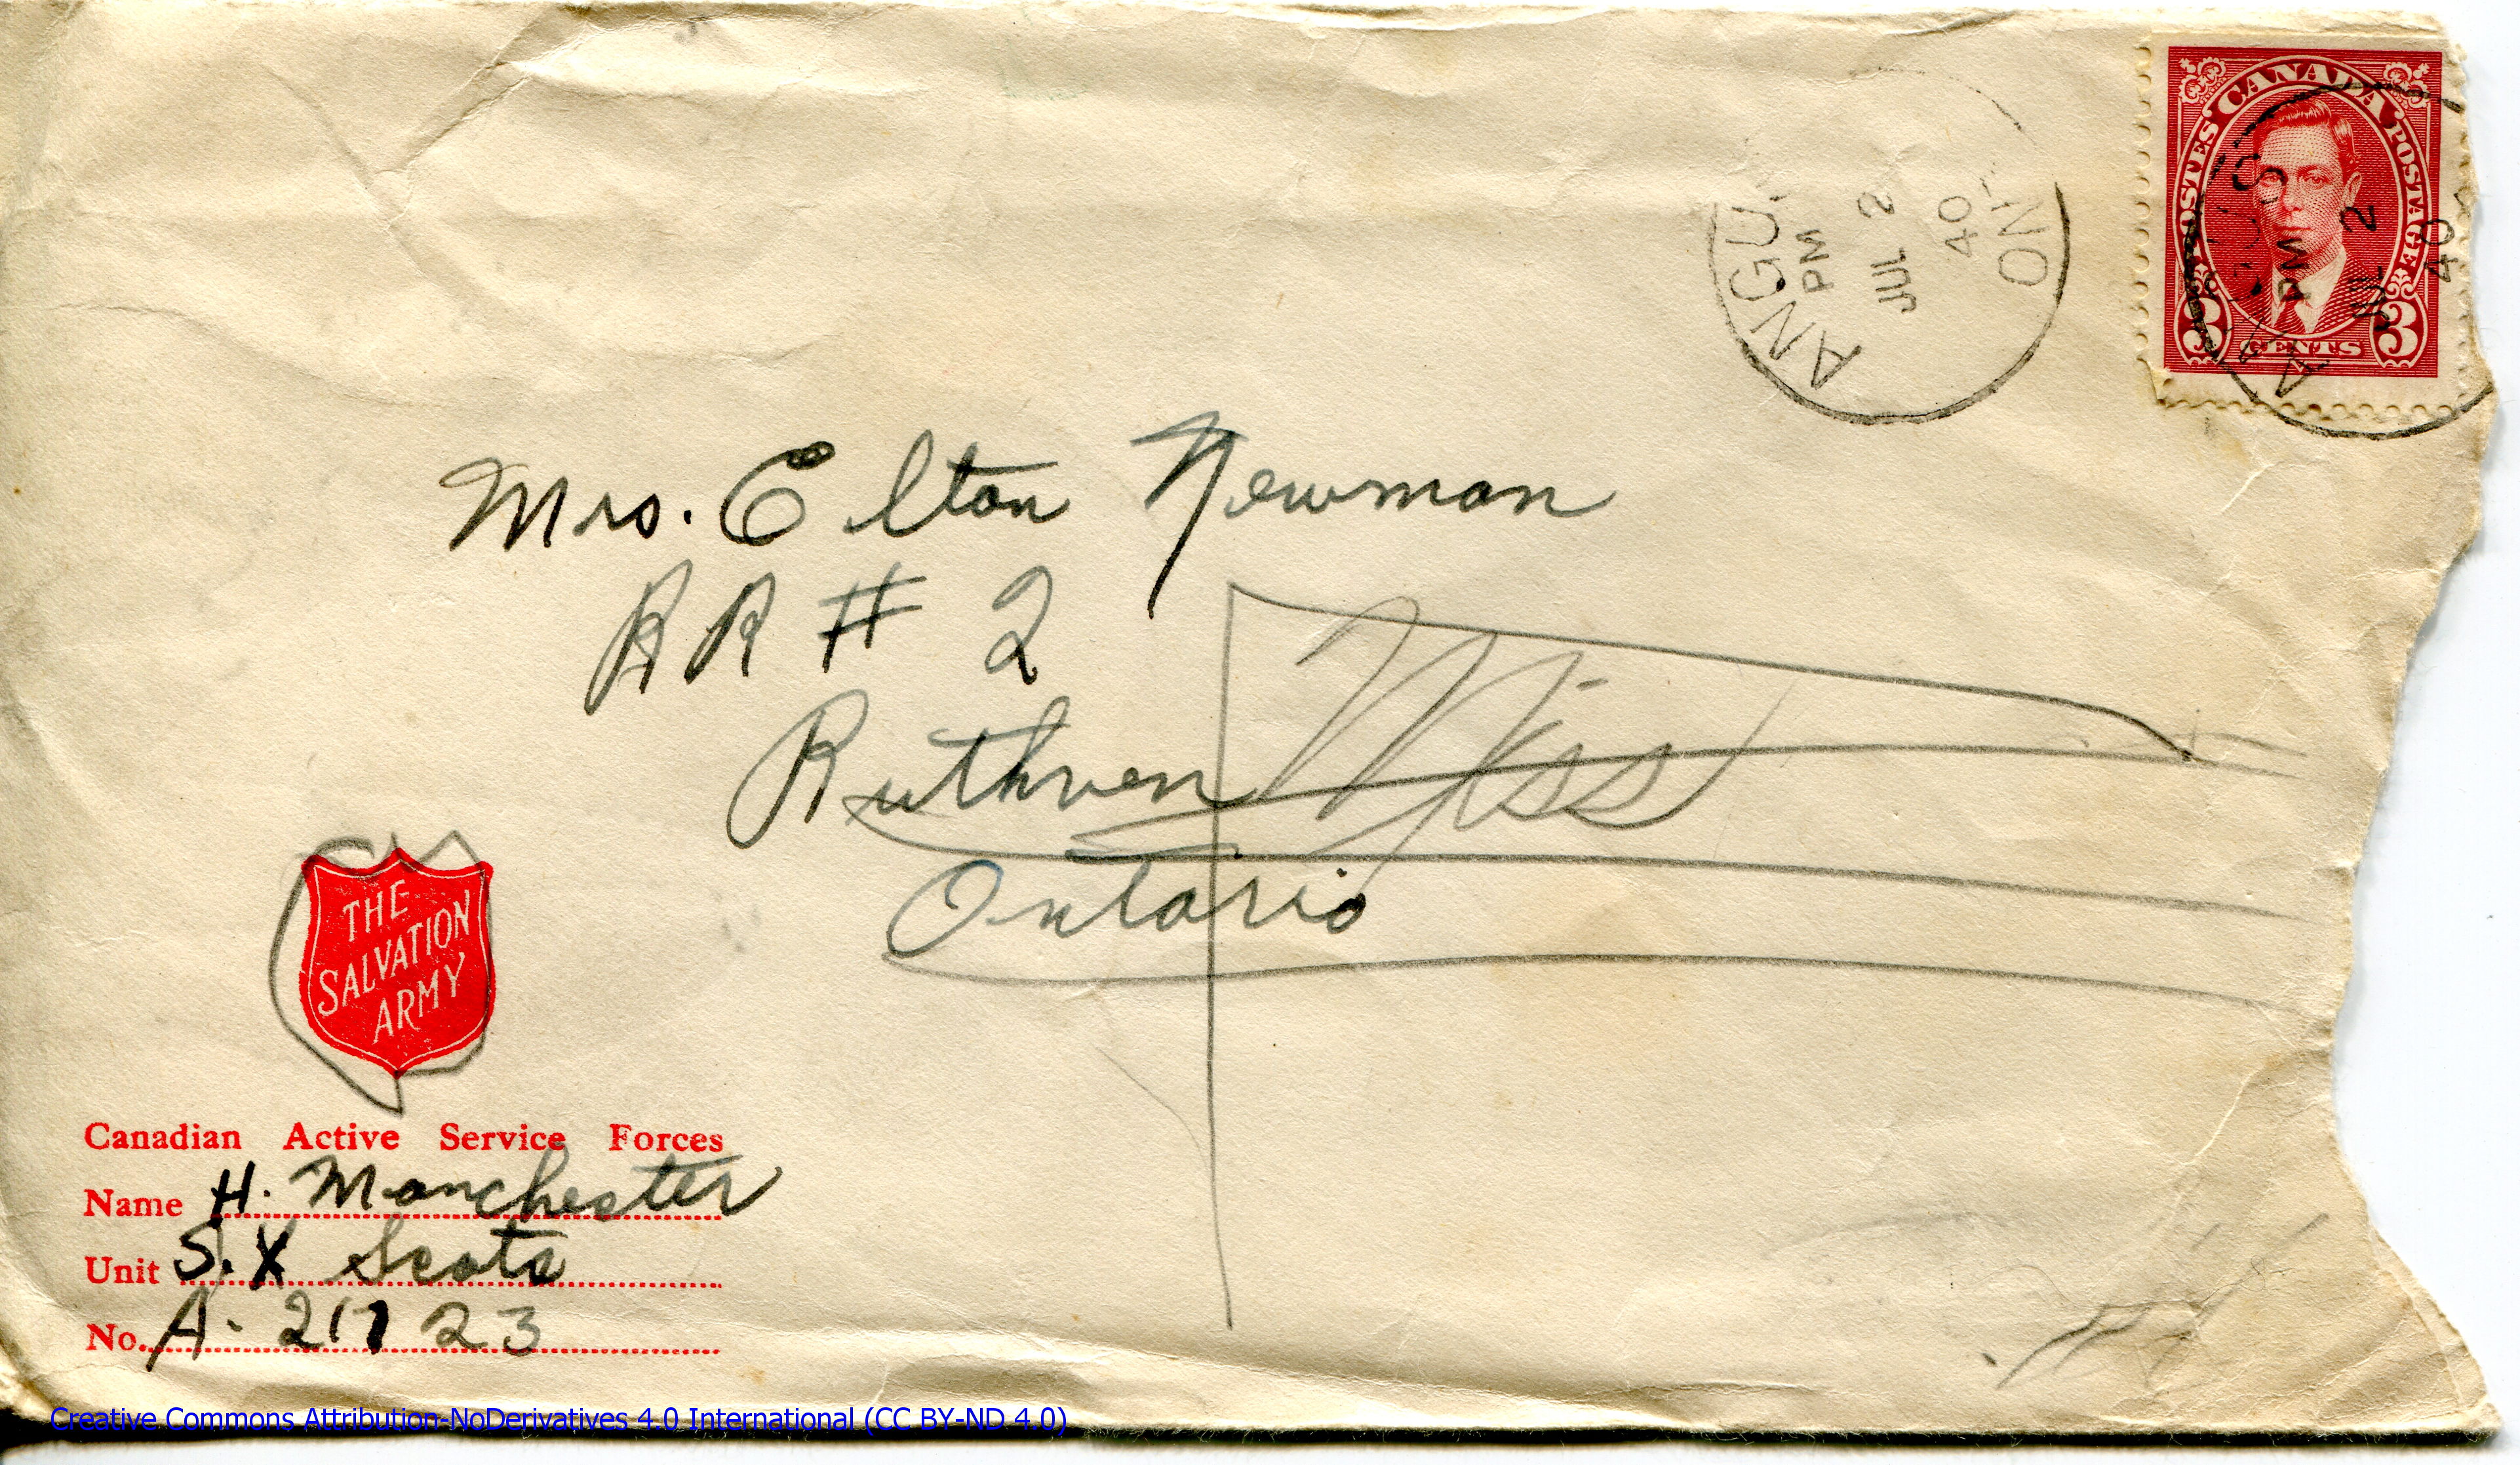 CANADA
POSTES POSTAGE
3 CENTS 3
ANGUS
PM
JUL 2
40
ANGU
PM
JUL 2
40
ONT
Mrs. Elton Newman
RR # 2
Ruthven
Miss
Ontario
THE
SALVATION
ARMY
Canadian Active Service Forces
Name H. Manchester
Unit S.X Scots
No. A-21723
Creative Commons Attribution-NoDerivatives 4.0 International (CC BY-ND 4.0)